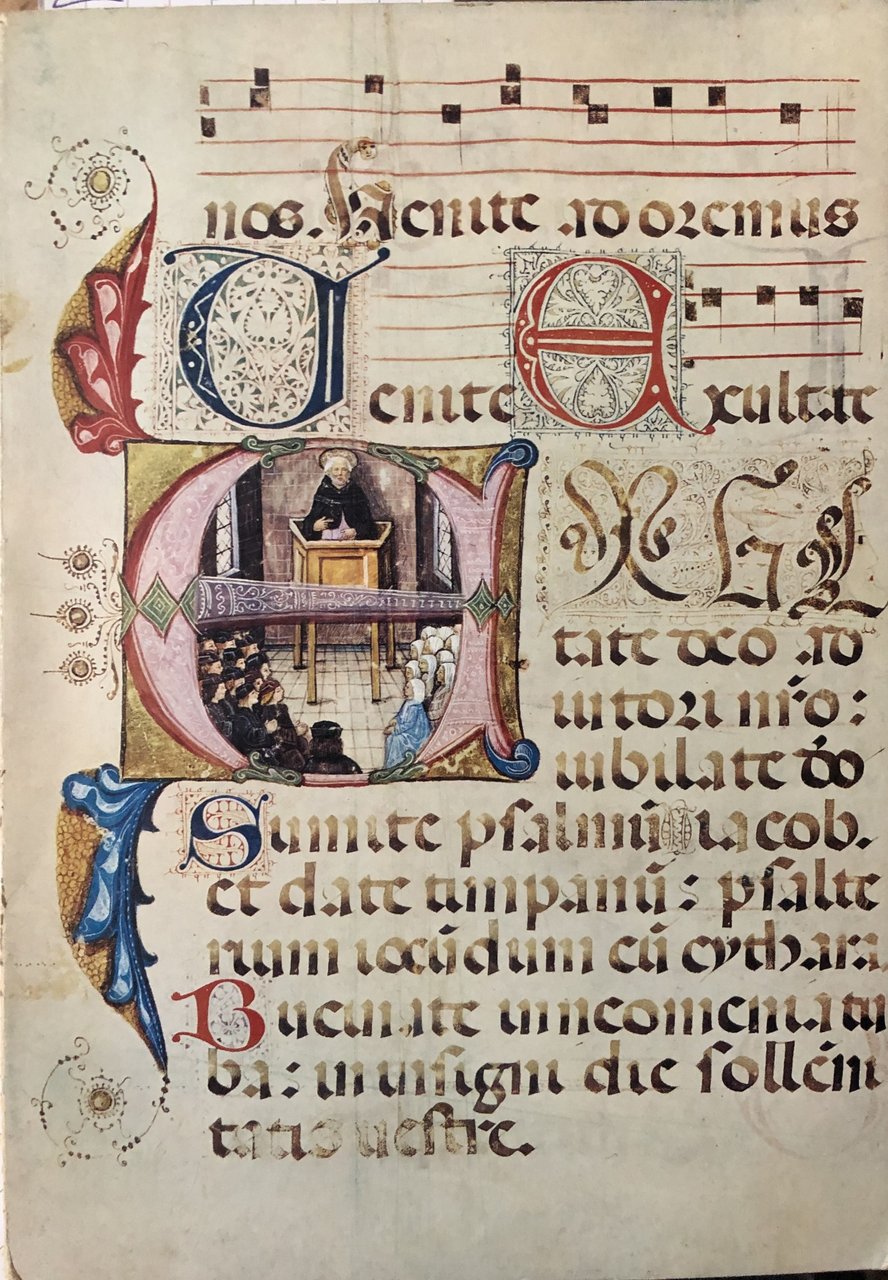 nos. Venite adoremus
Venite Exultate
EXUL
tate deo ad
iutori nr̄o :
iubilate dō
Sumite psalmū iacob.
et date timpanū : psalte
rium iocūdum cū cythara
Bucinate in neomenia tu
ba : in insigni die sollēni
tatis vestre.